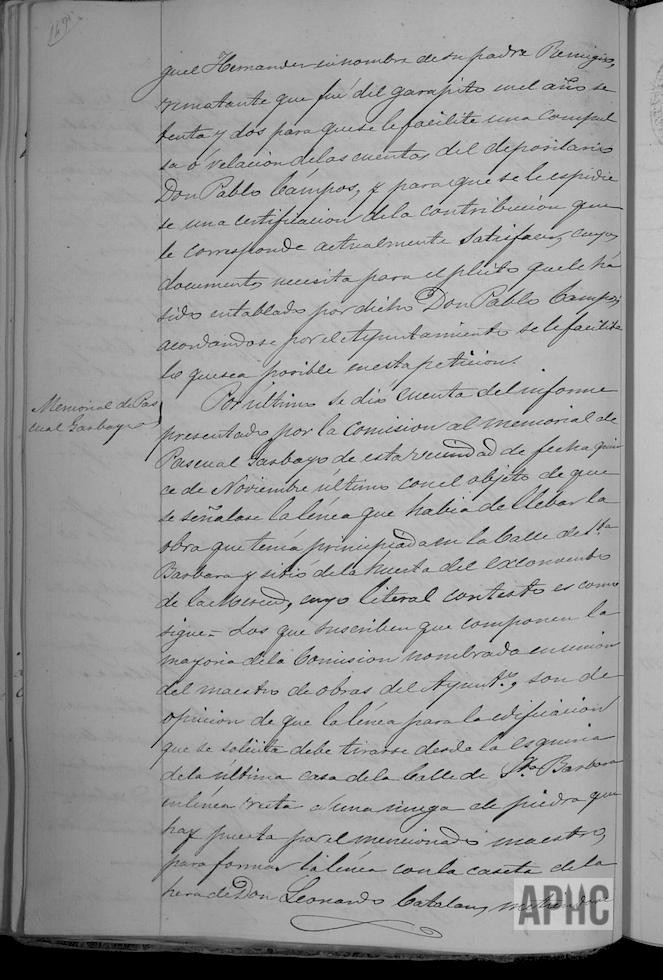 guel Hernandez en nombre de su padre Remigio,
rematante que fué del garapito en el año se
tenta y dos para que se le facilite una compul
sa ó relacion de las cuentas del depositario
Don Pablo Campos, y para que se le espidie
se una certificacion de la contribucion que
le corresponde actualmente satisfacer, cuyos
documentos necesita para el pleito que le ha
sido entablado por dicho Don Pablo Campos;
acordandose por el Ayuntamiento se le facilite
lo que sea posible en esta peticion.
Memorial de Pas
cual Garbayo
Por último se dió cuenta del informe
presentado por la Comision al memorial de
Pascual Garbayo de esta vecindad de fecha quin
ce de Noviembre último con el objeto de que
se señalase la línea que habia de llebar la
obra que tenía principiada en la Calle de Sta
Barbara y sitio de la huerta del exconvento
de la Merced, cuyo literal contesto es como
sigue= Los que suscriben que componen la
mayoria de la Comision nombrada en union
del maestro de obras del Ayuntto, son de
opinion de que la línea para la edificacion
que se solicita debe tirarse desde la esquina
de la última casa de la Calle de Sta Barbara
en línea recta á una muga de piedra que
hay puesta por el mencionado maestro,
para formar la línea con la caseta de la
hera de Don Leonardo Catalan,
APHC